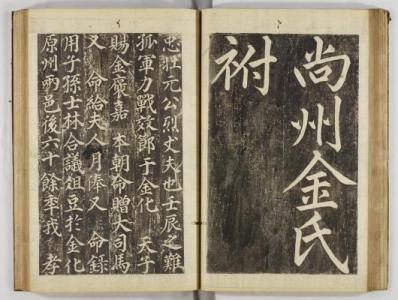 尚州金氏
祔
忠壯元公烈丈夫也壬辰之難
孤軍力戰效節于金化 天子
賜金褒嘉 本朝命贈大司馬
又 命給夫人月俸又 命錄
用子孫士林合議俎豆於金化
原州兩邑後六十餘年我 孝